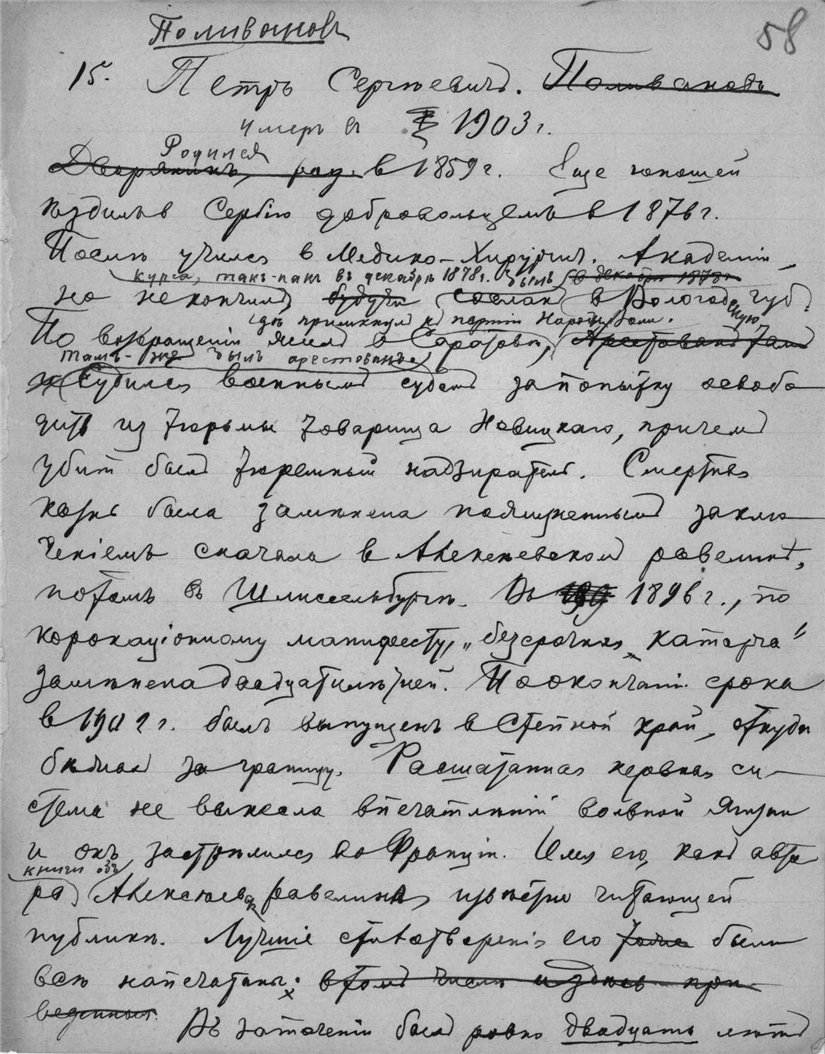 Поливановъ
58
15. Петръ Сергѣевичъ. Поливановъ
Умеръ въ 1903 г.
Родился
Дворянинъ, род. в 1859 г. Еще юношей
ѣздилъ в Сербію добровольцемъ в 1876 г.
Послѣ учился в Медико-Хирургич. Академіи,
курса, въ декабрѣ 1878 г. былъ в декабрѣ 1878 г.
но не кончилъ будучи сосланъ в Вологодскую губ.
гдѣ примкнулъ к партіи Народн. Воли.
По возвращеніи жилъ в Саратовѣ, Арестованъ тамъ
тамъ-же былъ арестованъ,
и Судился военнымъ судомъ за попытку освобо
дить из тюрьмы товарища Новицкаго, причемъ
убит былъ тюремный надзиратель. Смертная
казнь была замѣнена пожизненнымъ заклю
ченіемъ сначала в Алексѣевском равелинѣ,
потомъ въ Шлиссельбургѣ. Въ 1896 г., по
коронаціонному манифесту, „безсрочная каторга"
замѣнена двадцатилѣтней. По окончаніи срока
в 1902 г. былъ выпущенъ в Степной край, откуда
бѣжал за границу. Расшатанная нервная си-
стема не вынесла впечатлѣній вольной жизни
и онъ застрѣлился во Франціи. Имя его, какъ авто
книги объ
ра Алексѣевск равелинѣ извѣстно читающей
публикѣ. Лучшіе стихотворенія его тоже были
всѣ напечатаны; в томъ числѣ и здѣсь при-
веденныя. Въ заточеніи былъ ровно двадцать лѣтъ